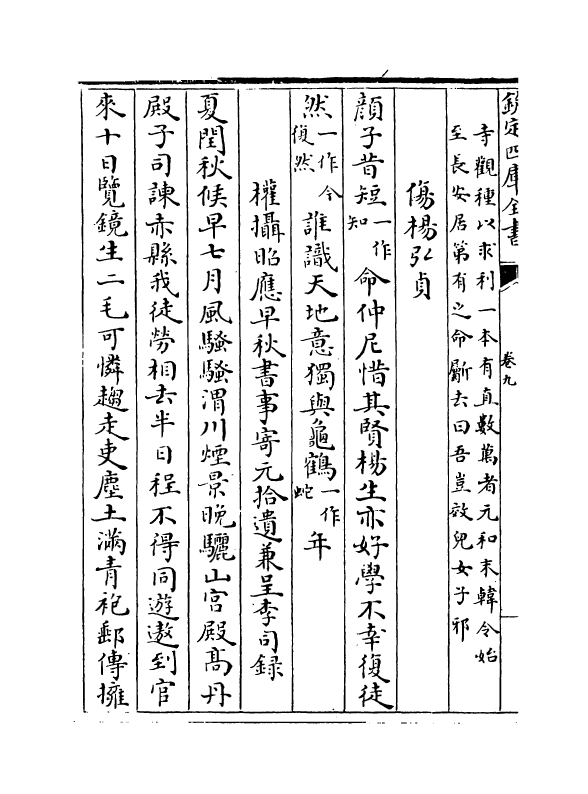 欽定四庫全書
卷九
寺觀種以求利一本有直數萬者元和末韓令始
至長安居第有之命斸去曰吾豈效兒女子邪
傷楊弘貞
顔子昔短一作知命仲尼惜其賢楊生亦好學不幸復徒
然一作今復然誰識天地意獨與龜鶴一作蛇年
權攝昭應早秋書事寄元拾遺兼呈李司錄
夏閏秋候早七月風騷騷渭川煙景晚驪山宮殿髙丹
殿子司諫赤縣我徒勞相去半日程不得同遊遨到官
來十日覽鏡生二毛可憐趨走吏塵土滿青袍郵傳擁